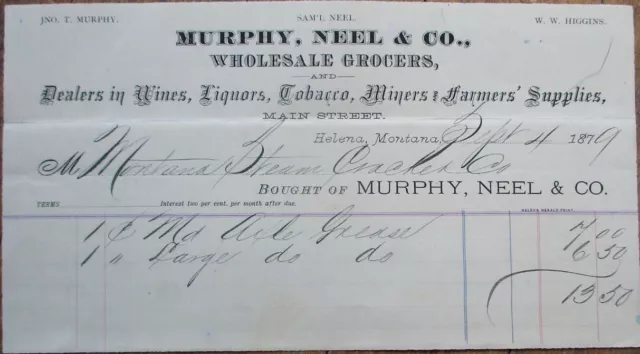 JNO. T. MURPHY. SAM'L NEEL. W. W. HIGGINS.
MURPHY, NEEL & CO.,
WHOLESALE GROCERS,
AND
Dealers in Wines, Liquors, Tobacco, Miners & Farmers' Supplies,
MAIN STREET.
Helena, Montana, Sept 4 1879
M Montana Steam Cracker Co
BOUGHT OF MURPHY, NEEL & CO.
TERMS Interest two per cent. per month after due. HELENA HERALD PRINT.
1 Md Axle Grease 7 00
1 " Large do do 6 50
13 50